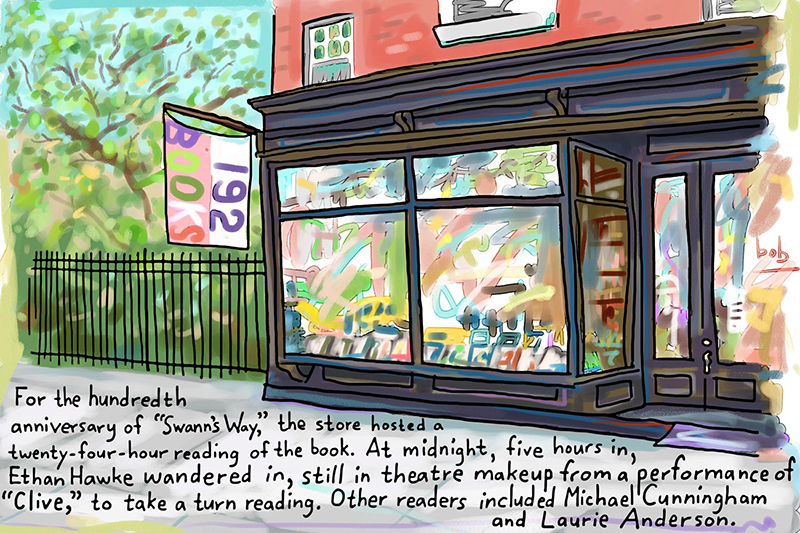 192
BOOKS
bob
For the hundredth
anniversary of “Swann’s Way,” the store hosted a
twenty-four-hour reading of the book. At midnight, five hours in,
Ethan Hawke wandered in, still in theatre makeup from a performance of
“Clive,” to take a turn reading. Other readers included Michael Cunningham
and Laurie Anderson.